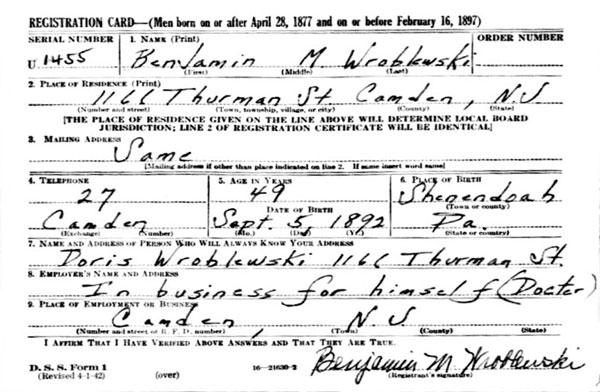 REGISTRATION CARD—(Men born on or after April 28, 1877 and on or before February 16, 1897)
SERIAL NUMBER 1. NAME (Print) ORDER NUMBER
U 1455 Benjamin M. Wroblewski
(First) (Middle) (Last)
2. PLACE OF RESIDENCE (Print)
1166 Thurman St. Camden, N.J
(Number and street) (Town, township, village, or city) (County) (State)
[THE PLACE OF RESIDENCE GIVEN ON THE LINE ABOVE WILL DETERMINE LOCAL BOARD
JURISDICTION; LINE 2 OF REGISTRATION CERTIFICATE WILL BE IDENTICAL]
3. MAILING ADDRESS
Same
[Mailing address if other than place indicated on line 2. If same insert word same]
4. TELEPHONE 5. AGE IN YEARS 6. PLACE OF BIRTH
27 49 Shenendoah
DATE OF BIRTH (Town or county)
Camden Sept. 5, 1892 Pa.
(Exchange) (Number) (Mo.) (Day) (Yr.) (State or country)
7. NAME AND ADDRESS OF PERSON WHO WILL ALWAYS KNOW YOUR ADDRESS
Doris Wroblewski 1166 Thurman St.
8. EMPLOYER'S NAME AND ADDRESS
In business for himself (Doctor)
9. PLACE OF EMPLOYMENT OR BUSINESS
Camden, N.J
(Number and street or R. F. D. number) (Town) (County) (State)
I AFFIRM THAT I HAVE VERIFIED ABOVE ANSWERS AND THAT THEY ARE TRUE.
D. S. S. Form 1
(Revised 4-1-42) (over) 16—21630-2 Benjamin M. Wroblewski
(Registrant's signature)